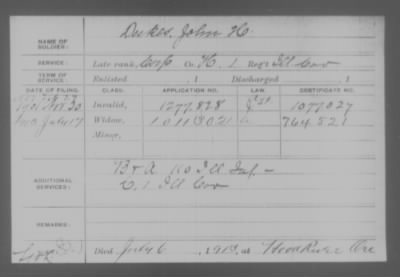 NAME OF SOLDIER: Dukes, John H.
SERVICE: Late rank, Corp Co. H, 1 Reg't Ill Cav
TERM OF SERVICE: Enlisted , 1 Discharged , 1
DATE OF FILING. CLASS. APPLICATION NO. LAW. CERTIFICATE NO.
Nov 30 Invalid, 1277,828 1077027
July 17 Widow, 764,521
Minor,
ADDITIONAL SERVICES: B & A 110 Ill Inf -
C. 1 Ill Cav
REMARKS:
Died July 6, 1913, at Hood River Ore